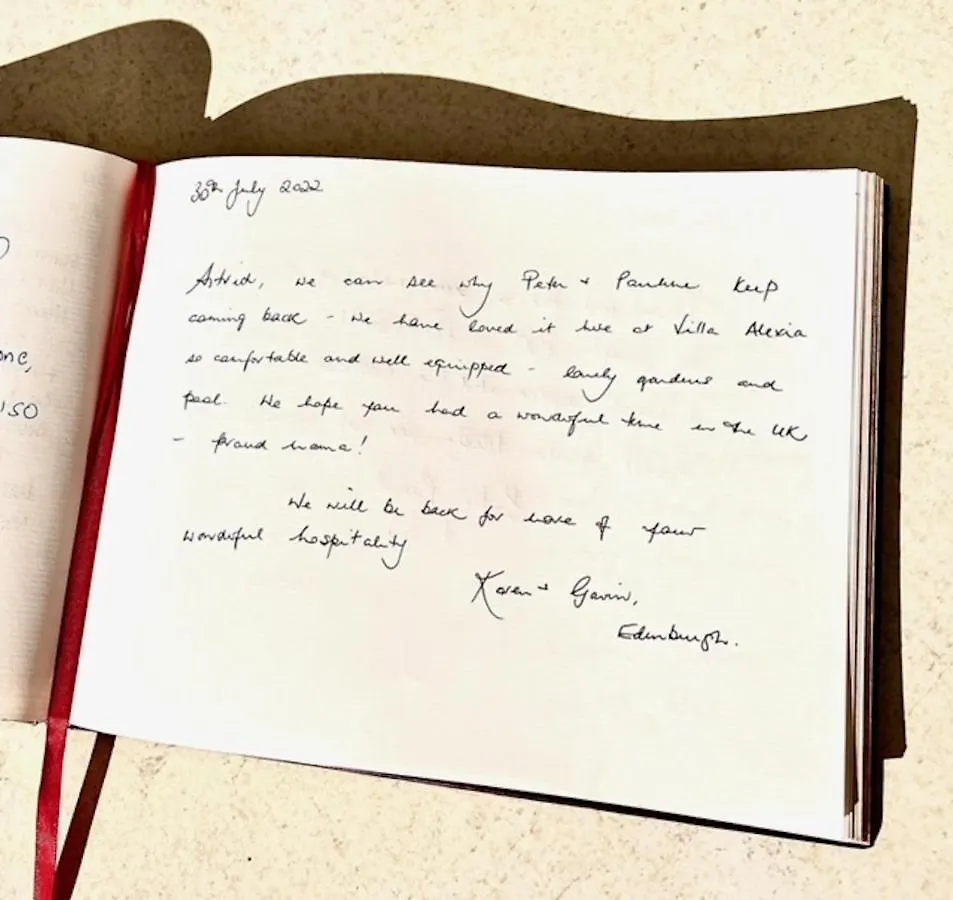 one,
uso
30th July 2022
Astrid, we can see why Peter + Pauline keep
coming back - we have loved it here at Villa Alexia
so comfortable and well equipped - lovely gardens and
pool. We hope you had a wonderful time in the UK
- proud mama!
We will be back for more of your
wonderful hospitality
Karen + Gavin,
Edinburgh.